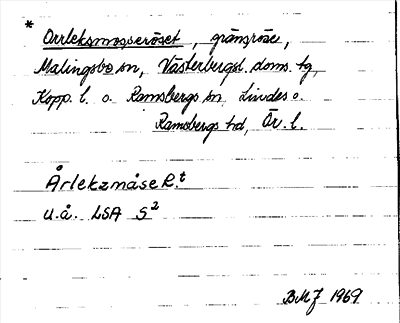 * Orrleksmosseröset, gränsröse,
Malingsbo sn, Västerbergsl. doms. tg,
Kopp. l. o. Ramsbergs sn Lindes o.
Ramsbergs hd, Ör. l.
Årlekzmåse R.t
U.å. LSA S2
BMJ 1969